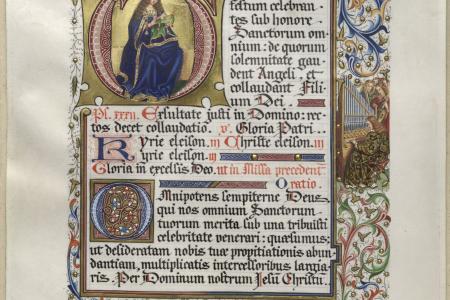 festum celebran⸗
tes sub honore
Sanctorum om⸗
nium: de quorum
solemnitate gau⸗
dent Angeli, et
collaudant Fili⸗
um Dei.
Ps. xxxii. Exsultate justi in Domino: rec⸗
tos decet collaudatio. v. Gloria Patri.
Kyrie eleison. iij Christe eleison. iij
Kyrie eleison. iij
Gloria in excelsis Deo. ut in Missa precedenti
Oratio.
Omnipotens sempiterne Deus,
qui nos omnium Sanctorum
tuorum merita sub una tribuisti
celebritate venerari: quæsumus:
ut desideratam nobis tuæ propitiationis abun⸗
dantiam, multiplicatis intercessoribus largia⸗
ris. Per Dominum nostrum Jesu Christu